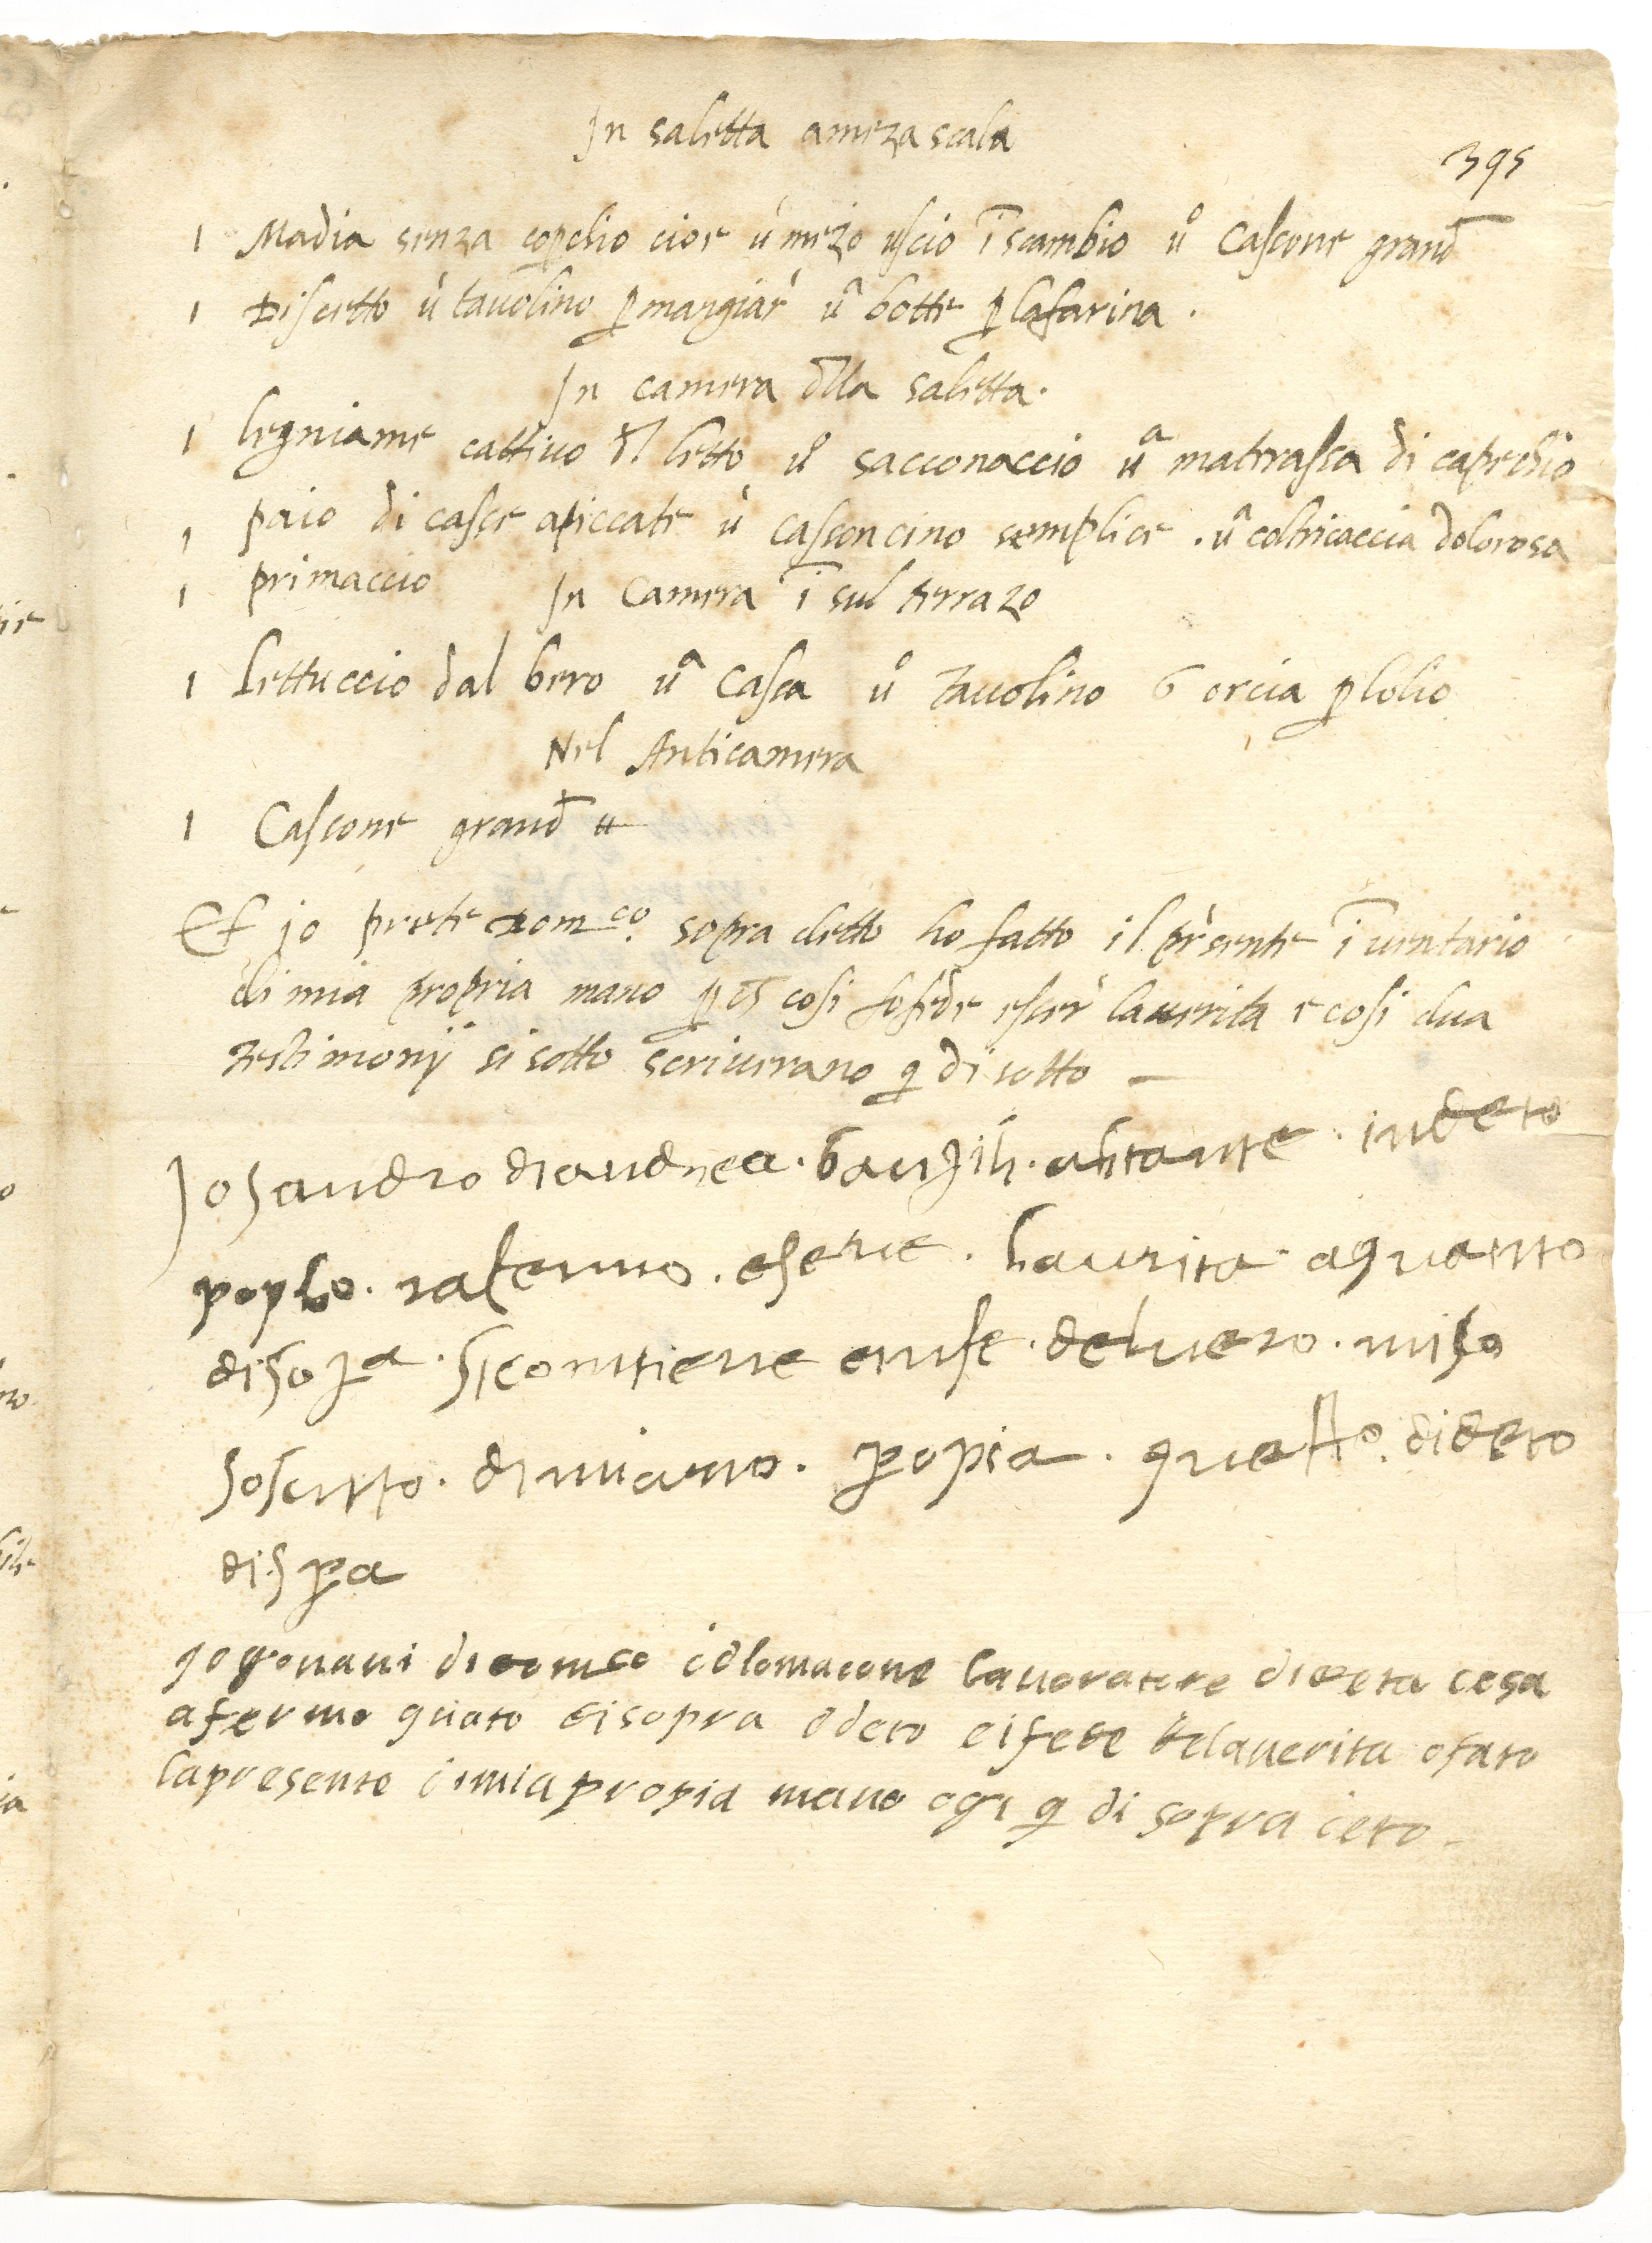 In saletta ameza scala
395
1 Madia senza copchio cioe ũ mezo uscio ĩ scambio ũo Cascone grand̃
1 Discetto ũ tauolino p mangiar̃ ũa botte p lafarina.
In camera dlla saletta.
1 legniame cattiuo dl letto ũo sacconaccio ũa matrasca di capechio
1 paio di casce apiccate ũ casconcino semplice. ũa coltricaccia dolorosa
1 primaccio In Camera ĩ sul terrazo
1 lettuccio dal bero ũa Casca ũo tauolino 6 orcia p lolio
Nel Anticamera
1 Cascone grand̃
Et jo prete Domco. sopra detto ho fatto il pr̃sente ĩ uentario
di mia propria mano p cosi fo fede escer̃ lauerita e cosi dua
testimonij si sotto scriuerano q di sotto
Jo sandro diandrea. abitante. indeto
popl̃o. rafermo. esere. laurita. aquanto
disopa. sicomtiene enfe. deluero. miso
soscrito. dimiamo. popia. questo. dideto
dispa
Jo govani dicomco lauoratore dideta cosa
afermo quato disopra edeto eifede delauerita ofato
lapresente dimia propia mano ogi q di sopra deto